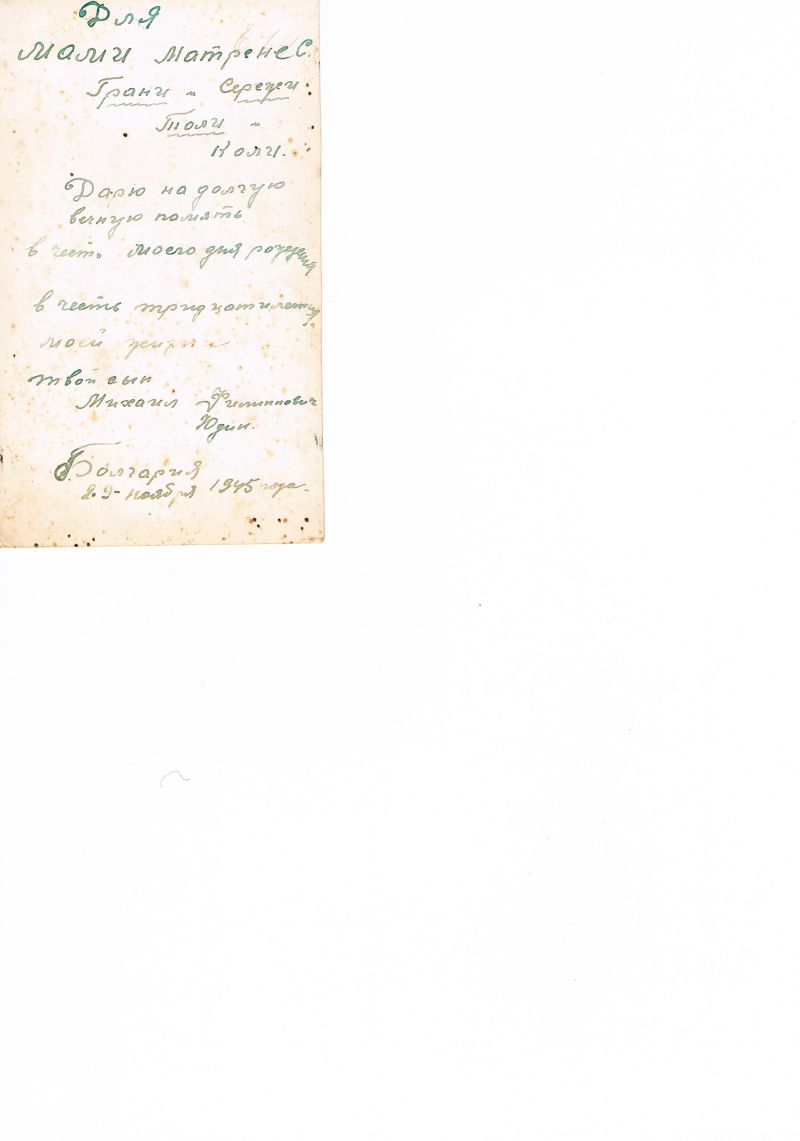 Для
Мами Матрене С.
Грани и Сережи.
Толи и
Коли.
Дарю на долгую
вечную память
в честь моего дня рождения
в честь тридцатилетия
моей жизни
твой сын
Михаил Филиппович
Юдин.
Болгария
2.9- ноября 1945 года.